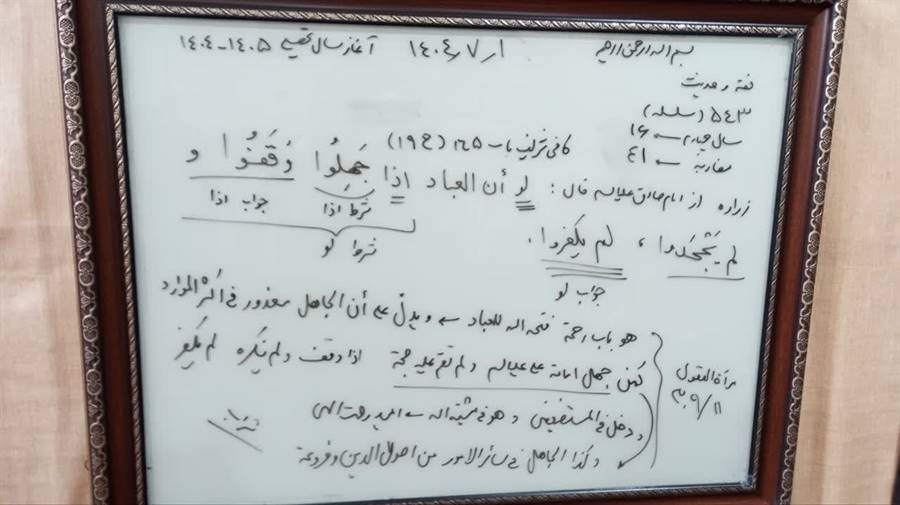 بسم اله الرحمن الرحیم
۱ر۷ر۱۴۰۴ آغاز سال تحصیلی ۱۴۰۵-۱۴۰۴
فقه و حدیث
۵۴۳ (سلسله)
سال چهارم ← ۱۶
۴۱ ←
کافی شریف باب ۱۶۵ (۱۹ح)
زراره از امام صادق علیه السلام قال : لو أن العباد اذا جَهِلُوا وَقَفُوا و
شرط اذا جواب اذا
شرط لو
لم یَجْحَدوا ، لم یکفروا.
جواب لو
مرآة العقول
۱۱/۹
هو باب رحمة فتحه اله للعباد ← و یدلّ علی أن الجاهل معذور فی اکثر الموارد
کمن جهل امامة علی علیه السلام و لم تقم علیه حجة اذا وقف و لم ینکره لم یکفر
و دخل فی المستضعفین و هو فی مشیّة اله ← امید رحمت الهی
و کذا الجاهل فی سائر الامور من اصول الدین و فروعه